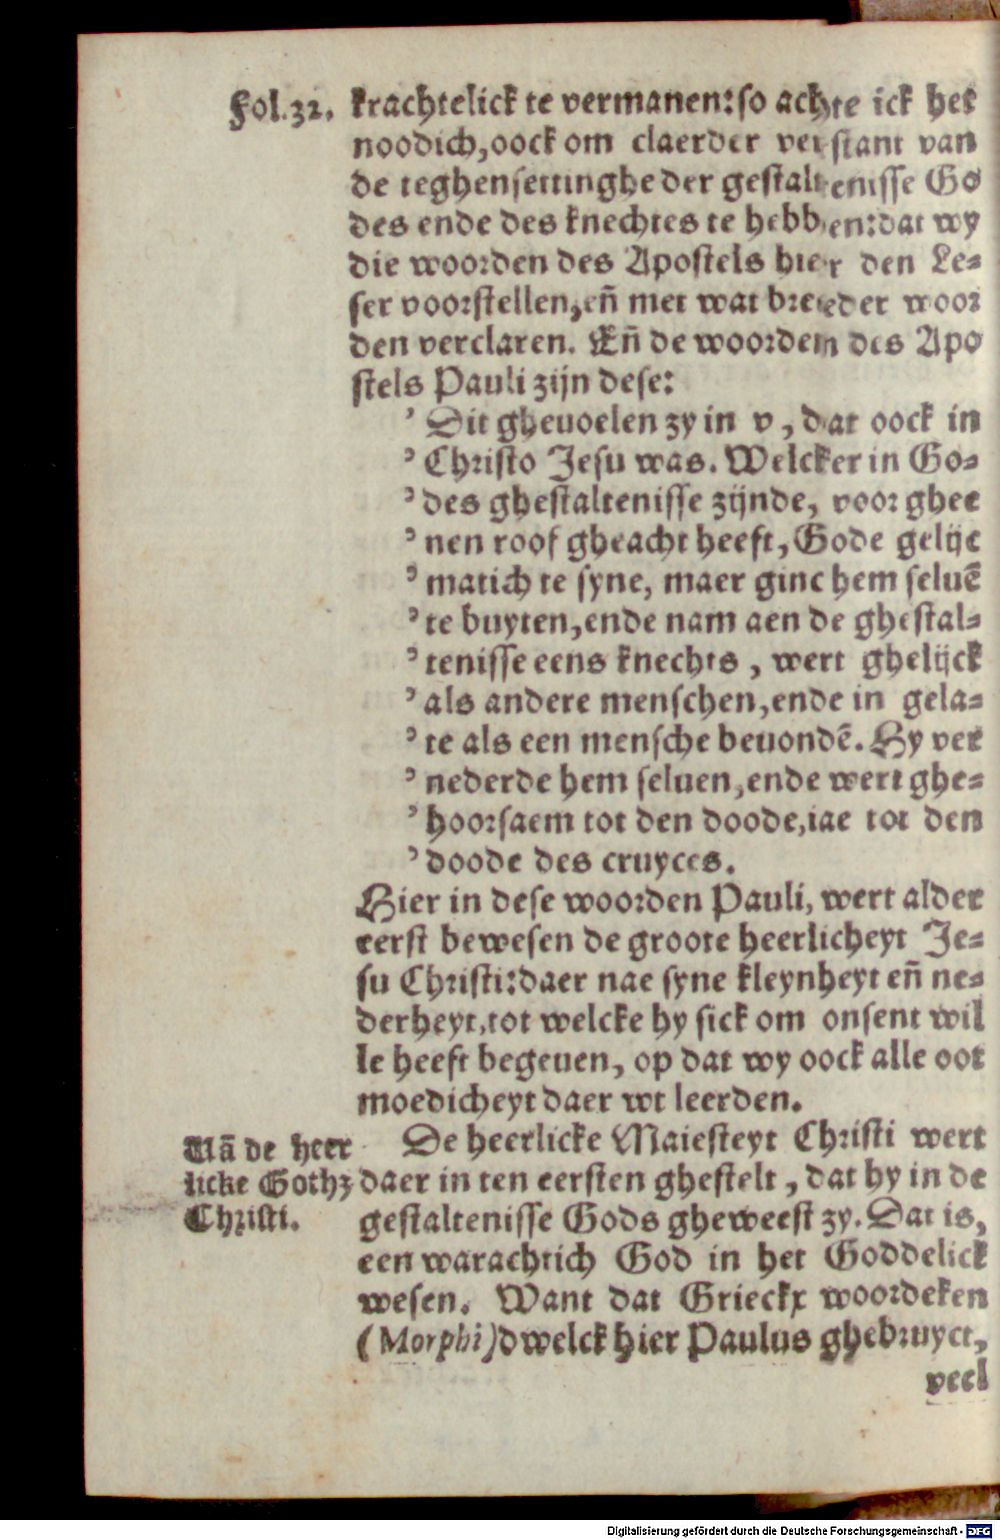 Fol.32.
krachtelick te vermanen: so achte ick het
noodich, oock om claerder verstant van
de teghensettinghe der gestaltenisse Go
des ende des knechtes te hebben: dat wy
die woorden des Apostels hier den Le-
ser voorstellen, eñ met wat breeder woor
den verclaren. Eñ de woorden des Apo
stels Pauli zijn dese:
’ Dit gheuoelen zy in v, dat oock in
’ Christo Jesu was. Welcker in Go-
’ des ghestaltenisse zijnde, voor ghee
’ nen roof gheacht heeft, Gode gelijc
’ matich te syne, maer ginc hem seluē
’ te buyten, ende nam aen de ghestal-
’ tenisse eens knechts, wert ghelijck
’ als andere menschen, ende in gela-
’ te als een mensche beuondē. Hy ver
’ nederde hem seluen, ende wert ghe-
’ hoorsaem tot den doode, iae tot den
’ doode des cruyces.
Hier in dese woorden Pauli, wert alder
eerst bewesen de groote heerlicheyt Je-
su Christi: daer nae syne kleynheyt eñ ne-
derheyt, tot welcke hy sick om onsent wil
le heeft begeuen, op dat wy oock alle oot
moedicheyt daer wt leerden.
Uā de heer
licke Gothz
Christi.
De heerlicke Maiesteyt Christi wert
daer in ten eersten ghestelt, dat hy in de
gestaltenisse Gods gheweest zy. Dat is,
een warachtich God in het Goddelick
wesen. Want dat Grieckx woordeken
(Morphi) dwelck hier Paulus ghebruyct,
veel
Digitalisierung gefördert durch die Deutsche Forschungsgemeinschaft - DFG